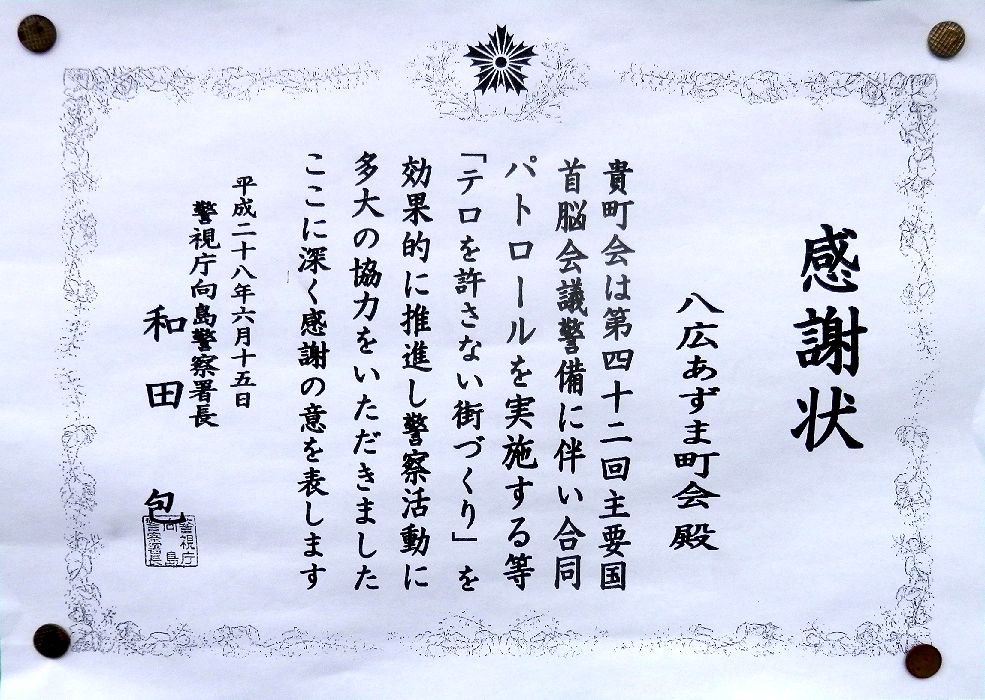 感謝状
八広あずま町会殿
貴町会は第四十二回主要国
首脳会議警備に伴い合同
パトロールを実施する等
「テロを許さない街づくり」を
効果的に推進し警察活動に
多大の協力をいただきました
ここに深く感謝の意を表します
平成二十八年六月十五日
警視庁向島警察署長
和田包
警視庁
向島
警察署長